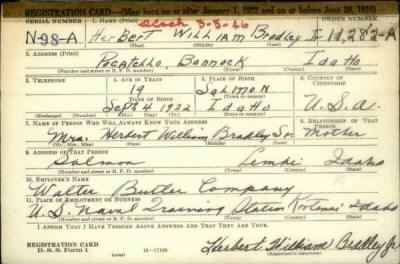 REGISTRATION CARD—(Men born on or after January 1, 1922 and on or before June 30, 1924)
SERIAL NUMBER 1. NAME (Print) ORDER NUMBER
N-98-A HerBerT WilliAM Bradley Jr. 11,282-A
(First) (Middle) (Last)
2. ADDRESS (Print)
PocATello, Bannock IdaHo
(Number and street or R. F. D. number) (Town) (County) (State)
3. TELEPHONE 4. AGE IN YEARS 5. PLACE OF BIRTH 6. COUNTRY OF CITIZENSHIP
19 SalMoN
DATE OF BIRTH
Sept 4 1922 IdaHo U.S.A.
(Exchange) (Number) (Mo.) (Day) (Yr.) (State or country)
7. NAME OF PERSON WHO WILL ALWAYS KNOW YOUR ADDRESS RELATIONSHIP OF THAT PERSON
Mrs. Herbert William Bradley Sr. Mother
(Mr., Mrs., Miss) (First) (Middle) (Last)
9. ADDRESS OF THAT PERSON
Salmon Lemhi Idaho
(Number and street or R. F. D. number) (Town) (County) (State)
10. EMPLOYER'S NAME
Walter Butler Company
11. PLACE OF EMPLOYMENT OR BUSINESS
U.S. Naval Training Station Kootenai Idaho
(Number and street or R. F. D. number) (Town) (County) (State)
I AFFIRM THAT I HAVE VERIFIED ABOVE ANSWERS AND THAT THEY ARE TRUE.
REGISTRATION CARD
D. S. S. Form 1 16—17105 Herbert William Bradley Jr
(Registrant's signature)